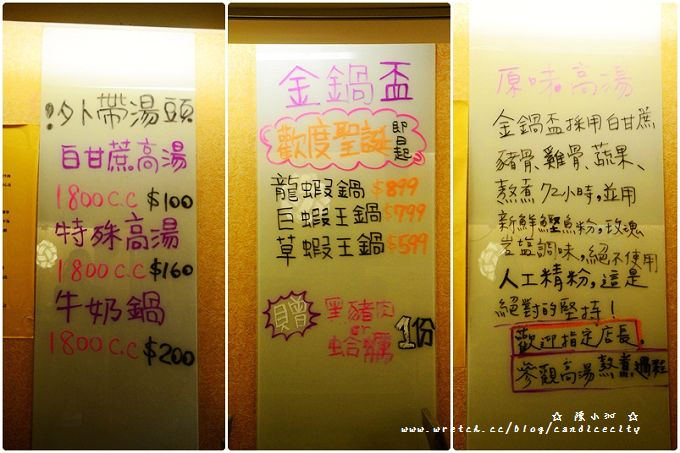 外帶湯頭
白甘蔗高湯
1800C.C $100
特殊高湯
1800C.C $160
牛奶鍋
1800C.C $200
金鍋盃
歡度聖誕 即日起
龍蝦鍋 $899
巨蝦王鍋 $799
草蝦王鍋 $599
黑豬肉
or
蛤蠣
1份
原味高湯
金鍋盃採用白甘蔗
豬骨、雞骨、蔬果、
熬煮72小時,並用
新鮮鰹魚粉,玫瑰
岩塩調味,絕不使用
人工精粉,這是
絕對的堅持!
歡迎指定店長,
參觀高湯熬煮過程
☆ 陳小沁 ☆
www.wretch.cc/blog/candicecity